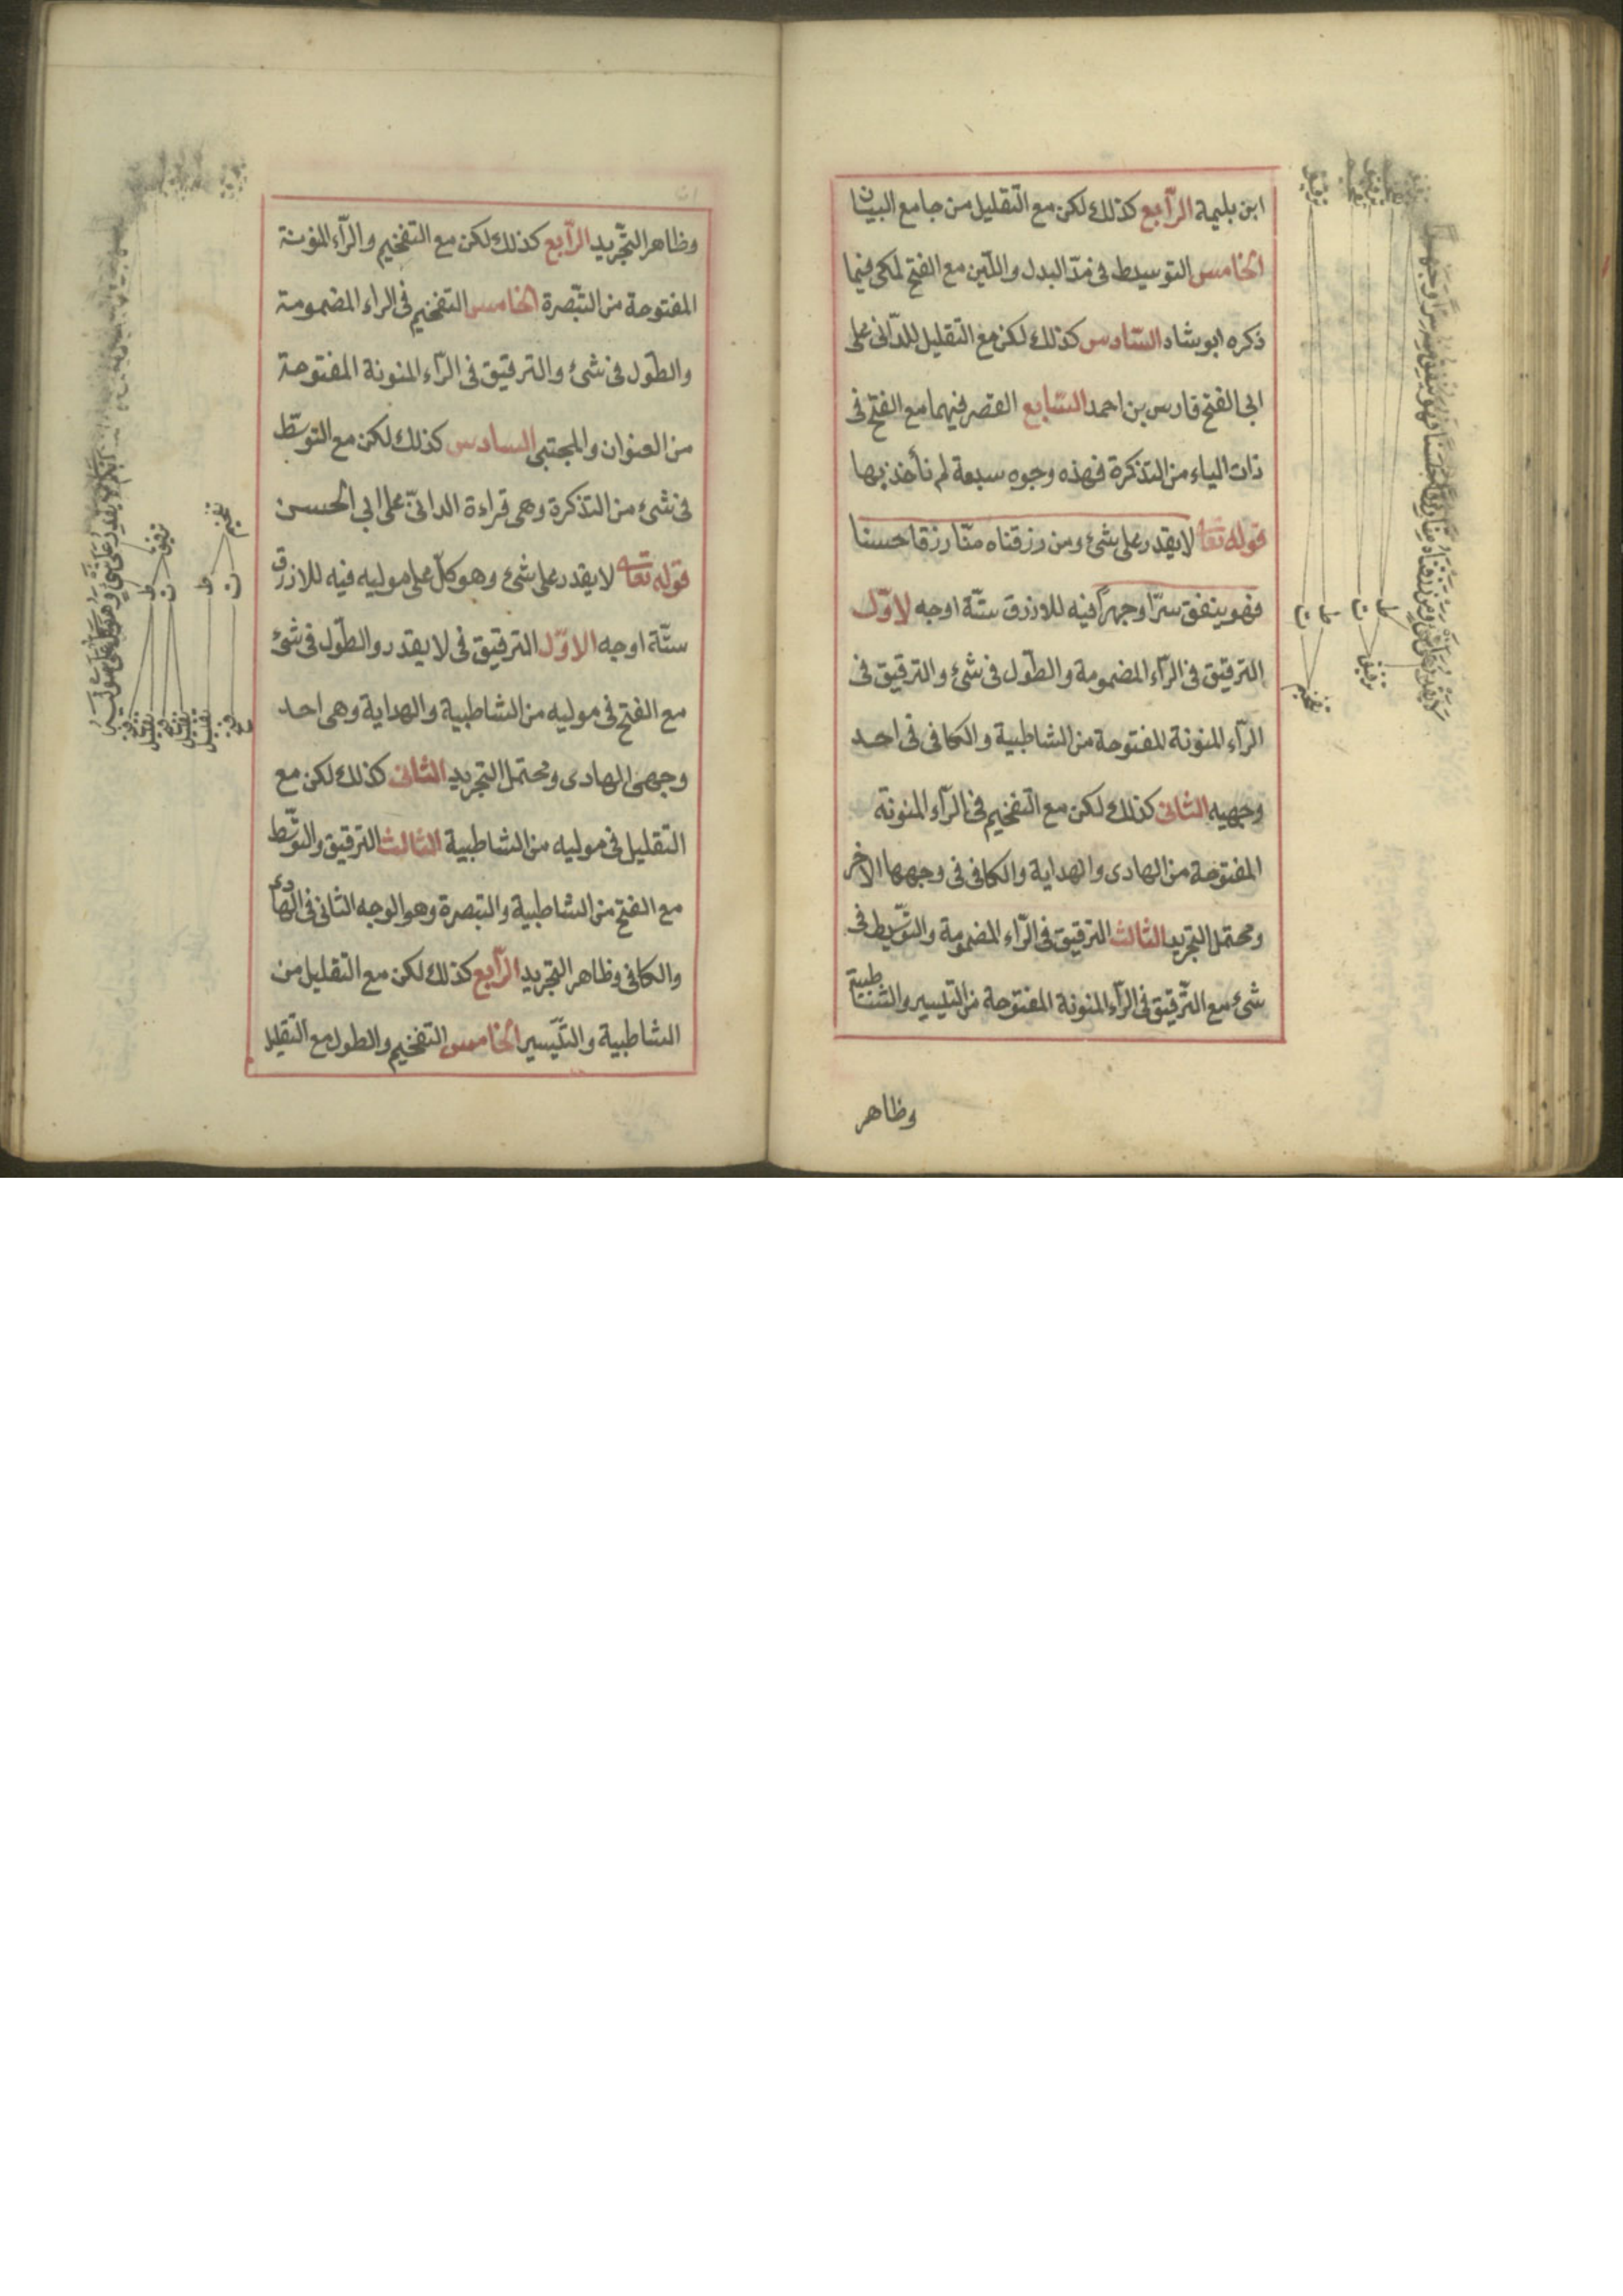 ابن بليمة الرّابع كذلك لكن مع التّقليل من جامع البيان
الخامس التوسيط فى مدّ البدل واللّين مع الفتح لمكى فيما
ذكره ابو شاد السّادس كذلك لكن مع التّقليل للدّانى على
ابى الفتح فارس بن احمد السّابع القصر فيهما مع الفتح فى
ذات الياء من التذكرة فهذه وجوه سبعة لم نأخذ بها
قوله تعا لا يقدر على شئ ومن رزقناه منّا رزقا حسنا
فهو ينفق سرّا وجهرًا فيه للازرق ستّة اوجه لاوّل
الترقيق فى الرّاء المضمومة والطّول فى شئ والترقيق فى
الرّاء المنونة المفتوحة من الشاطبية والكافى فى احد
وجهيه الثانى كذلك لكن مع التفخيم فى الرّاء المنونة
المفتوحة من الهادى والهداية والكافى فى وجهها الاخر
ومحتمل التجريد الثالث الترقيق فى الرّاء المضمومة والتّوسّيط فى
شئ مع الترقيق فى الرّاء المنونة المفتوحة من التيسير والشاطبية
وظاهر
لا يقدر على شئ ومن رزقناه منا رزقا حسنا فهو ينفق سرا وجهرا
ط
ت
ط
ت
ترقيق
تفخيم
ترقيق
وظاهر التّجريد الرّابع كذلك لكن مع التفخيم والرّاء المنونة
المفتوحة من التّبصرة الخامس التفخيم فى الراء المضمومة
والطّول فى شئ والترقيق فى الرّاء المنونة المفتوحة
من العنوان والمجتبى السادس كذلك لكن مع التوسّط
فى شئ من التذكرة وهى قراءة الدانىّ على ابي الحسن
قوله تعا لا يقدر على شئ وهو كلّ على موليه فيه للازرق
ستّة اوجه الاوّل الترقيق فى لا يقدر والطّول فى شئ
مع الفتح فى موليه من الشاطبية والهداية وهى احد
وجهى الهادى ومحتمل التجريد الثانى كذلك لكن مع
التقليل فى موليه من الشاطبية الثالث الترقيق والتوسّط
مع الفتح من الشاطبية والتبصرة وهو الوجه الثانى فى الهادى
والكافى وظاهر التجريد الرّابع كذلك لكن مع التقليل من
الشاطبية والتّيسير الخامس التفخيم والطول مع التقليل
لا يقدر على شئ وهو كل على موليه
ترقيق
تفخيم
ط
ت
ط
ت
فتح
تقليل
فتح
تقليل
تقليل
فتح